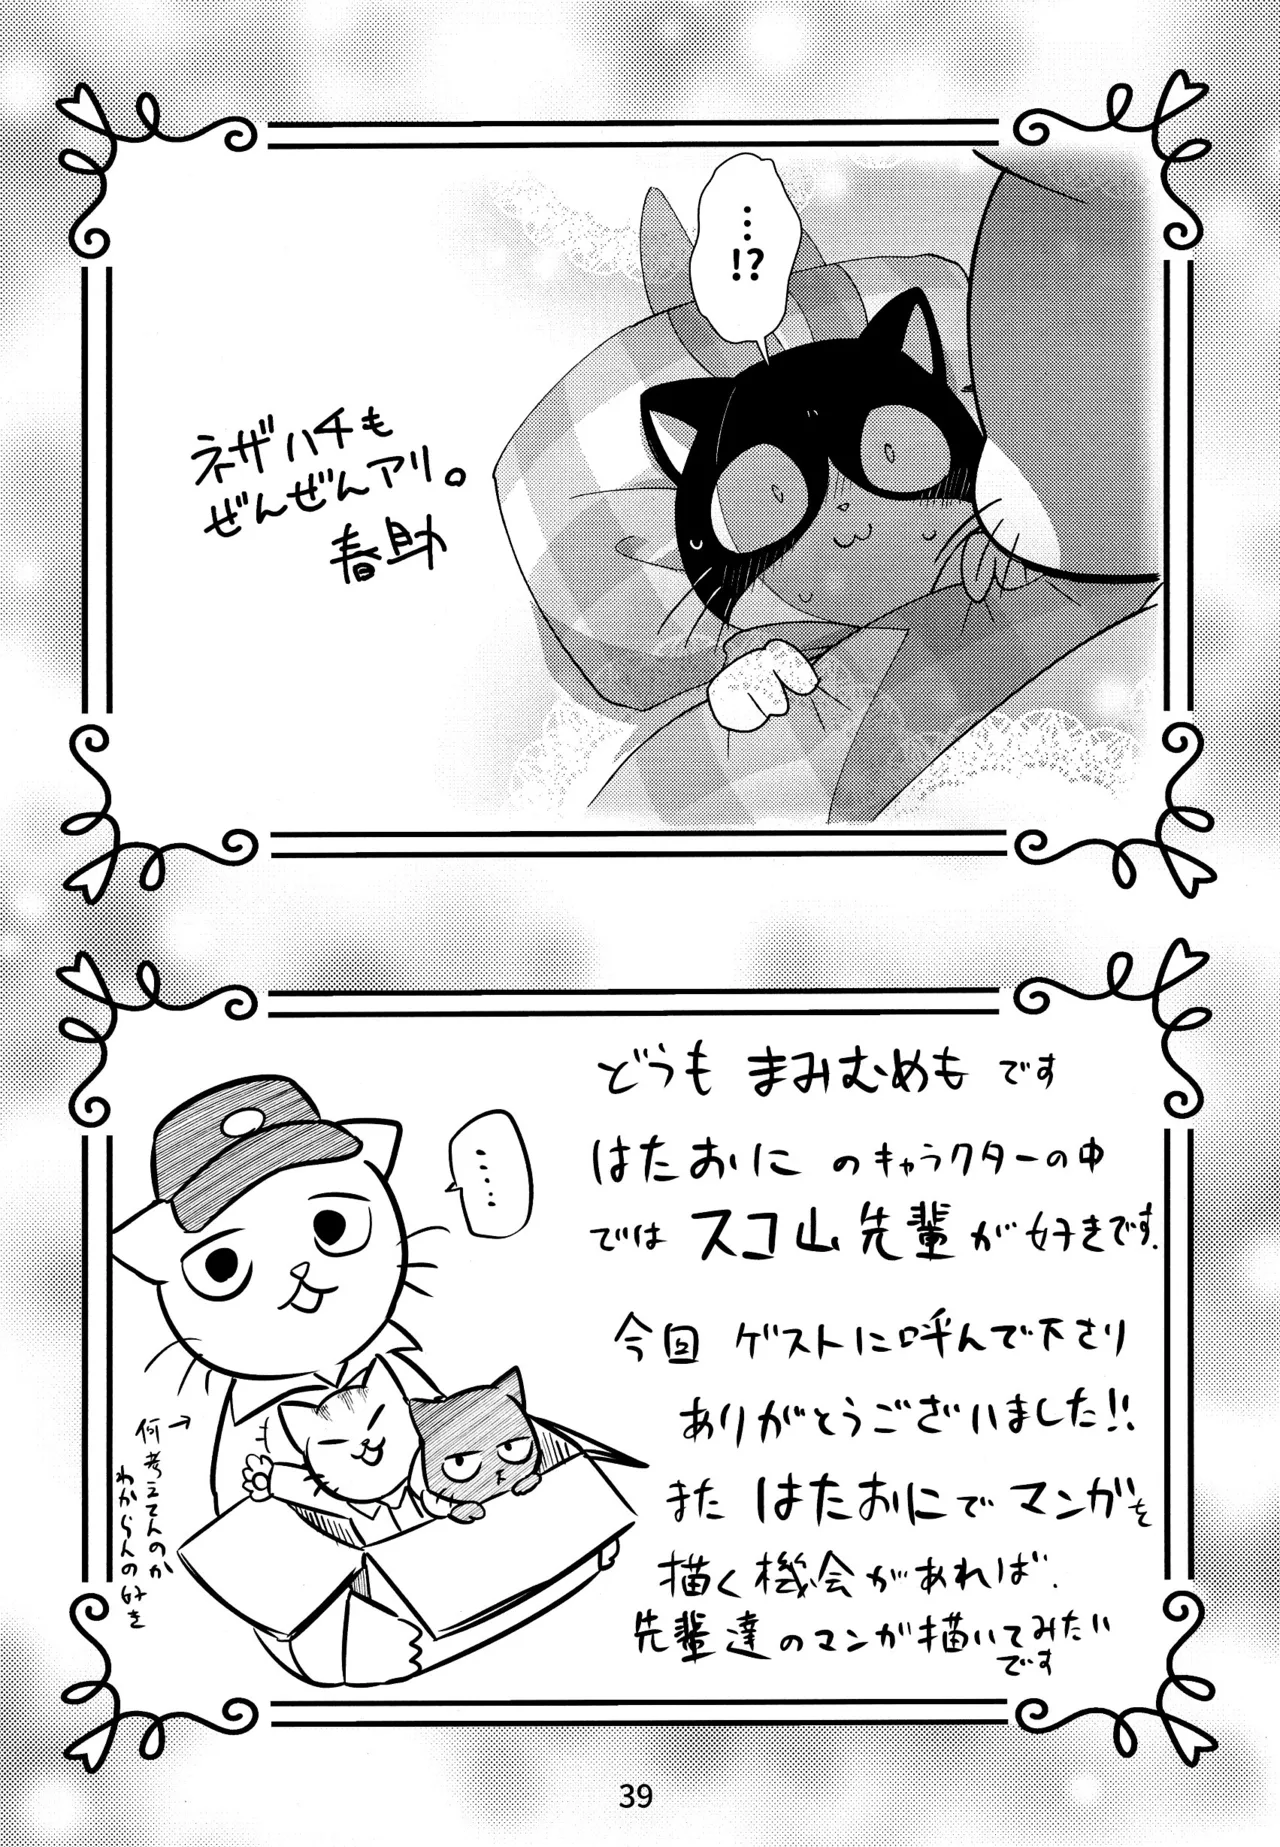 …
!?
ネザハチも
ぜんぜんアリ。
春助
どうも まみむめも です
はたおに のキャラクターの中
では スコ山先輩が好きです。
今回 ゲストに呼んで下さり
ありがとうございました!!
また はたおにで マンガを
描く機会があれば、
先輩達のマンガ描いてみたい
です
……
何考えてんのか
わからんの好き
39